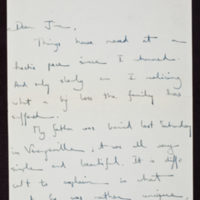 Dear Jim,
Things have moved at a
hectic pace since I
And only slowly am I realizing
what a big loss the family has
suffered.
My father was buried last Saturday
in            , it was all very
simple and beautiful. It is diffi-
cult to explain is that
he was rather unique,